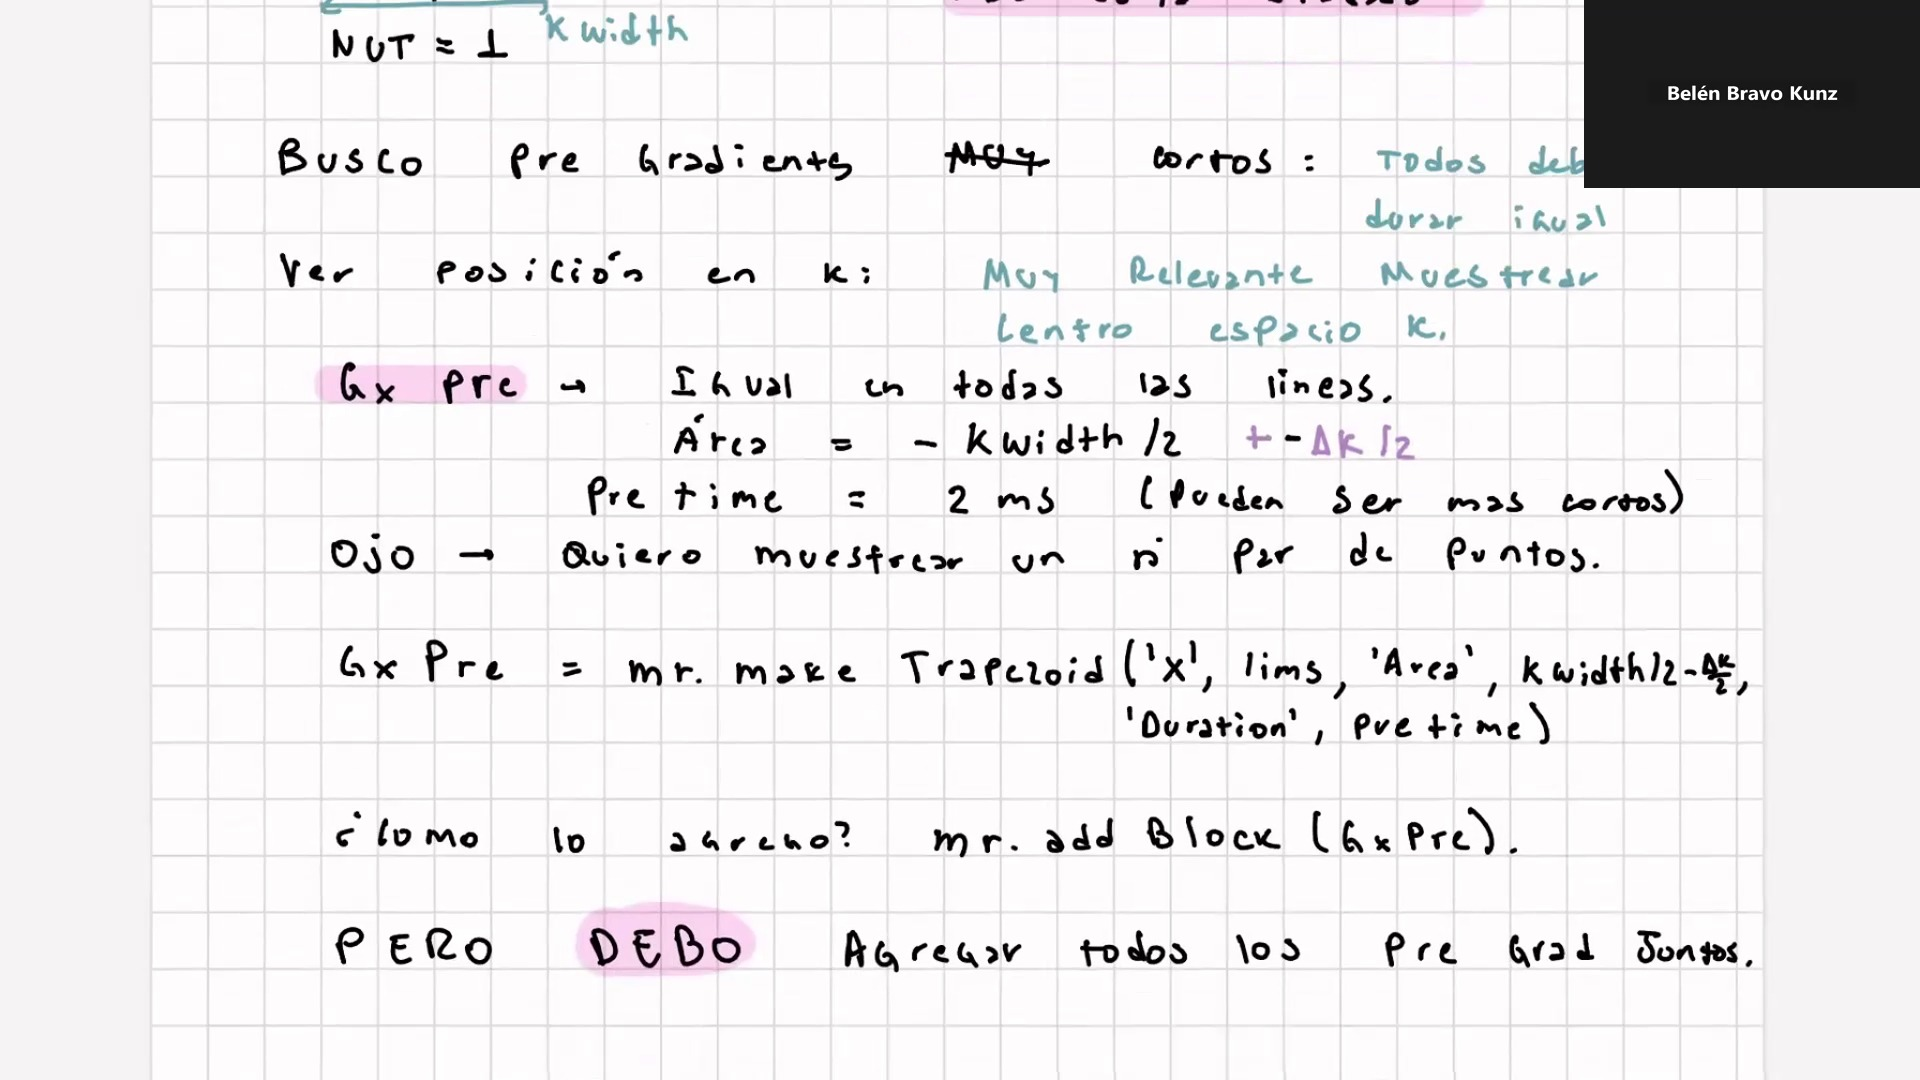 K width
NUT = 1
Belén Bravo Kunz
Busco Pre Gradients MUY cortos : Todos deb
durar igual
Ver posición en k: Muy Relevante Muestrear
Centro espacio K.
Gx Pre → Igual en todas las líneas.
Área = - K width /2 + - ΔK /2
Pre time = 2 ms (Pueden ser mas cortos)
Ojo → Quiero muestrear un n° par de puntos.
Gx Pre = mr. make Trapezoid ('x', lims, 'Area', K width/2 - Δk/2,
'Duration', pre time)
¿Como lo agrego? mr. add Block (Gx Pre).
PERO DEBO Agregar todos los Pre Grad Juntos.